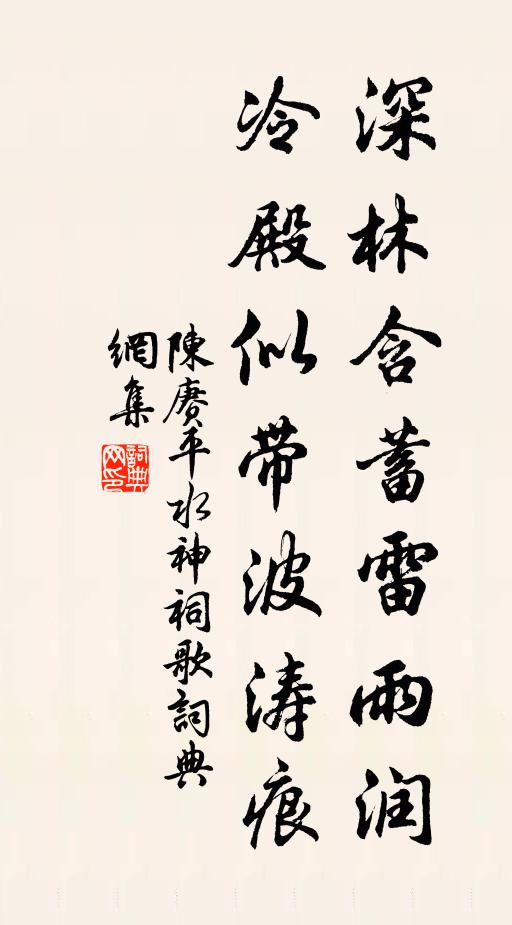 深林含蓄雷雨润
冷殿似带波涛痕
陳賡平水神祠歌詞典
網集
詞典
网印